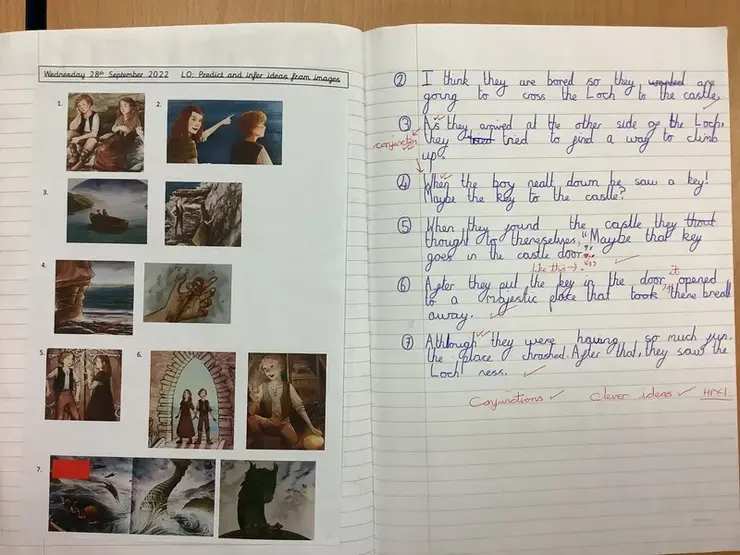 Wednesday 28th September 2022 LO: Predict and infer ideas from images
1.
2.
3.
4.
5.
6.
7.
② I think they are bored so they wanted are
going to cross the Loch to the castle.
③ As they arrived at the other side of the Loch,
conjunction they tried to find a way to climb
up.
④ When the boy nealt down he saw a key!
Maybe the key to the castle?
⑤ When they found the castle they thout
thought to themselves, "Maybe that key
goes in the castle door."
like this →
⑥ After they put the key in the door, it opened
to a majestic place that took there breath
away.
⑦ Although they were having so much fun.
the place chrashed. After that, they saw the
Loch ness.
Conjunctions ✓ Clever ideas ✓